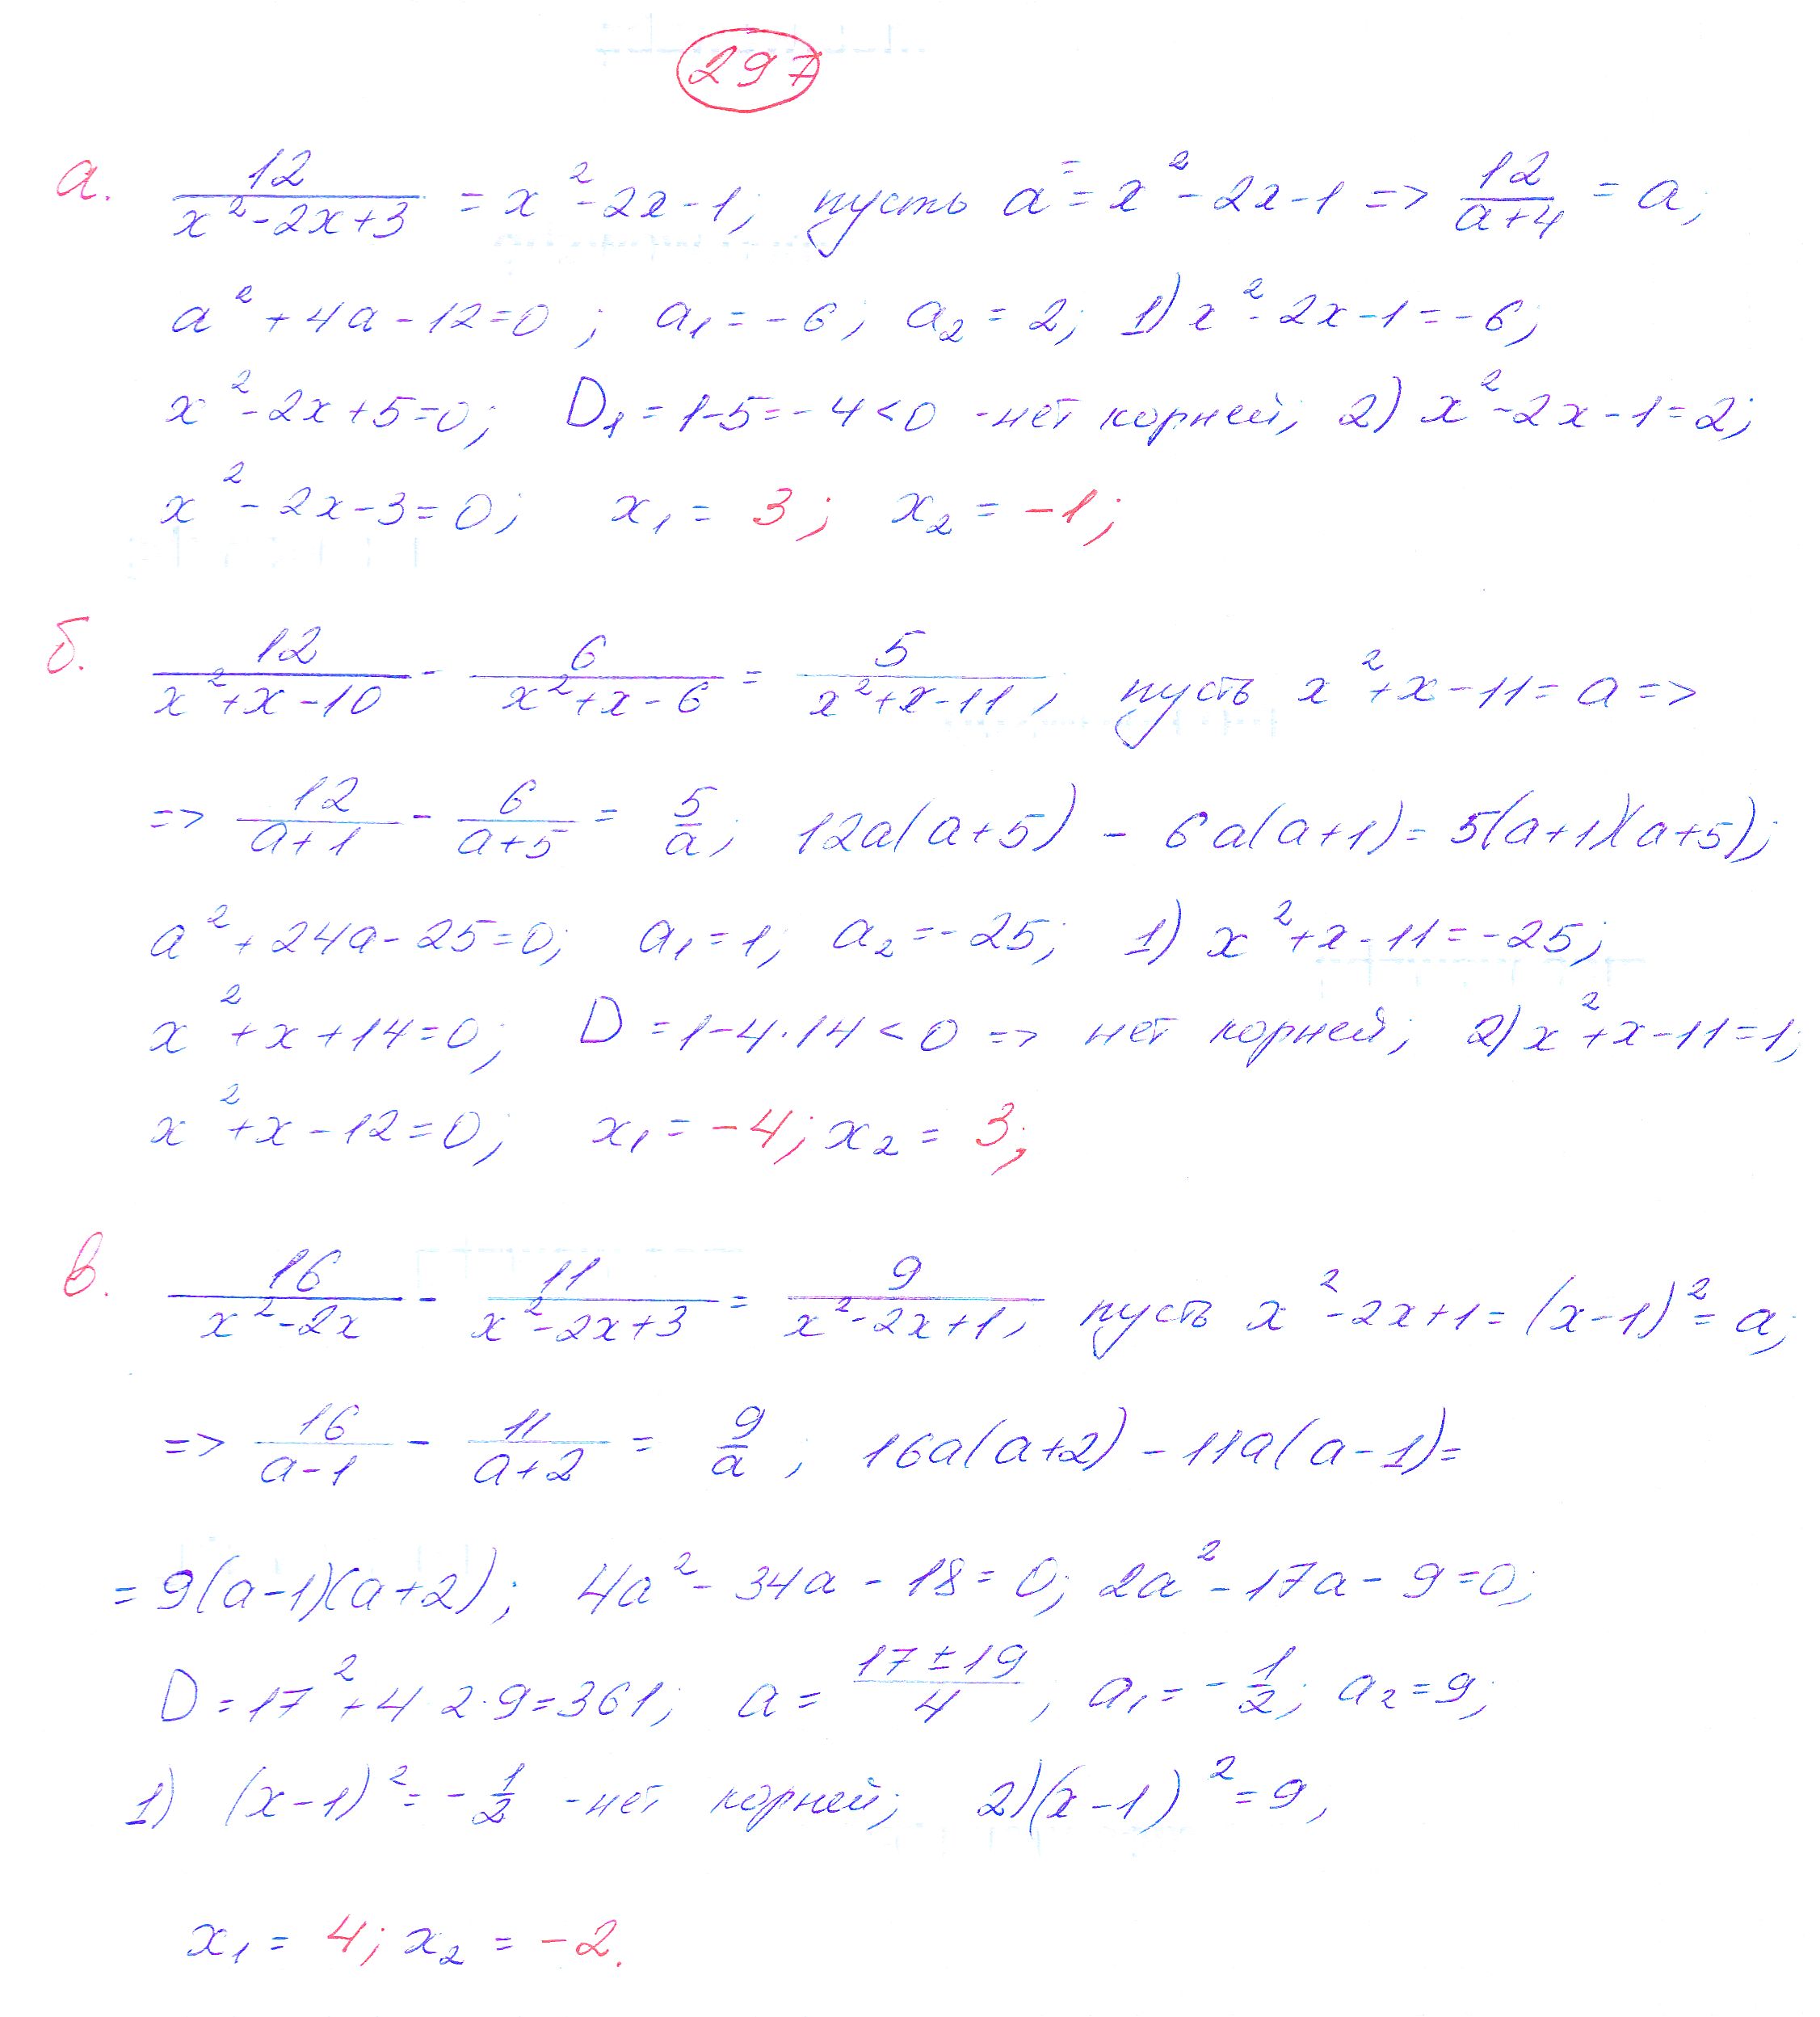 297
а. 12/(x²-2x+3) = x²-2x-1; пусть a = x²-2x-1 => 12/(a+4) = a;
a²+4a-12=0; a₁=-6; a₂=2; 1) x²-2x-1=-6;
x²-2x+5=0; D₁=1-5=-4<0 -нет корней; 2) x²-2x-1=2;
x²-2x-3=0; x₁=3; x₂=-1;
б. 12/(x²+x-10) - 6/(x²+x-6) = 5/(x²+x-11); пусть x²+x-11=a =>
=> 12/(a+1) - 6/(a+5) = 5/a; 12a(a+5) - 6a(a+1) = 5(a+1)(a+5);
a²+24a-25=0; a₁=1; a₂=-25; 1) x²+x-11=-25;
x²+x+14=0; D=1-4·14<0 => нет корней; 2) x²+x-11=1;
x²+x-12=0; x₁=-4; x₂=3;
в. 16/(x²-2x) - 11/(x²-2x+3) = 9/(x²-2x+1); пусть x²-2x+1=(x-1)²=a;
=> 16/(a-1) - 11/(a+2) = 9/a; 16a(a+2) - 11a(a-1)=
=9(a-1)(a+2); 4a²-34a-18=0; 2a²-17a-9=0;
D=17²+4 2·9=361; a=(17±19)/4; a₁=-1/2; a₂=9;
1) (x-1)²=-1/2 -нет корней; 2) (x-1)²=9,
x₁=4; x₂=-2.